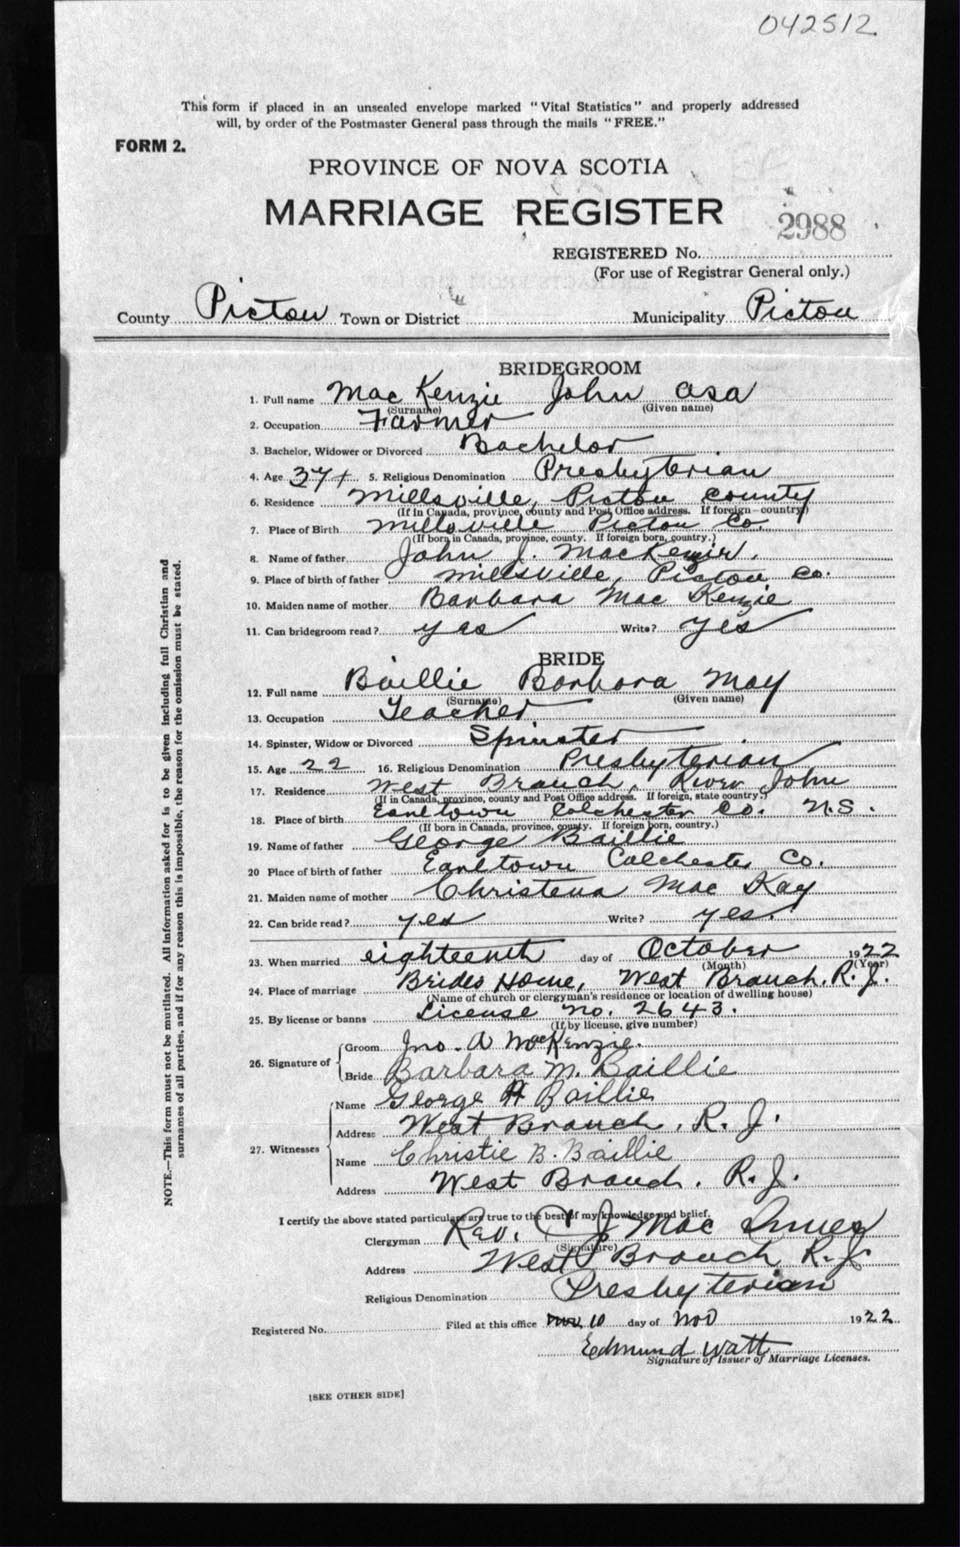 042512
This form if placed in an unsealed envelope marked "Vital Statistics" and properly addressed
will, by order of the Postmaster General pass through the mails "FREE."
FORM 2.
PROVINCE OF NOVA SCOTIA
MARRIAGE REGISTER
2988
REGISTERED No.
(For use of Registrar General only.)
County Pictou Town or District Municipality Pictou
BRIDEGROOM
1. Full name MacKenzie John Asa
(Surname) (Given name)
2. Occupation Farmer
3. Bachelor, Widower or Divorced Bachelor
4. Age 37 5. Religious Denomination Presbyterian
6. Residence Millsville, Pictou County
(If in Canada, province, county and Post Office address. If foreign country)
7. Place of Birth Millsville Pictou Co.
(If born in Canada, province, county. If foreign born, country.)
8. Name of father John J. MacKenzie.
9. Place of birth of father Millsville, Pictou Co.
10. Maiden name of mother Barbara MacKenzie
11. Can bridegroom read? yes Write? yes
BRIDE
12. Full name Baillie Barbara May
(Surname) (Given name)
13. Occupation Teacher
14. Spinster, Widow or Divorced Spinster
15. Age 22 16. Religious Denomination Presbyterian
17. Residence West Branch, River John
(If in Canada, province, county and Post Office address. If foreign, state country.)
18. Place of birth Earltown Colchester Co. N.S.
(If born in Canada, province, county. If foreign born, country.)
19. Name of father George Baillie
20 Place of birth of father Earltown Colchester Co.
21. Maiden name of mother Christena MacKay
22. Can bride read? yes Write? yes.
23. When married eighteenth day of October 1922
(Month) (Year)
24. Place of marriage Brides Home, West Branch. R. J.
(Name of church or clergyman's residence or location of dwelling house)
25. By license or banns License no. 2643.
(If by license, give number)
26. Signature of Groom Jno. A MacKenzie.
Bride Barbara M. Baillie
27. Witnesses Name George A Baillie
Address West Branch, R. J.
Name Christie B. Baillie
Address West Branch. R. J.
I certify the above stated particulars are true to the best of my knowledge and belief.
Clergyman Rev. J Mac Innes
(Signature)
Address West Branch R. J.
Religious Denomination Presbyterian
Registered No. Filed at this office 10 day of Nov 1922
Edmund Watt
Signature of Issuer of Marriage Licenses.
[SEE OTHER SIDE]
NOTE.—This form must not be mutilated. All information asked for is to be given including full Christian and
surnames of all parties, and if for any reason this is impossible, the reason for the omission must be stated.